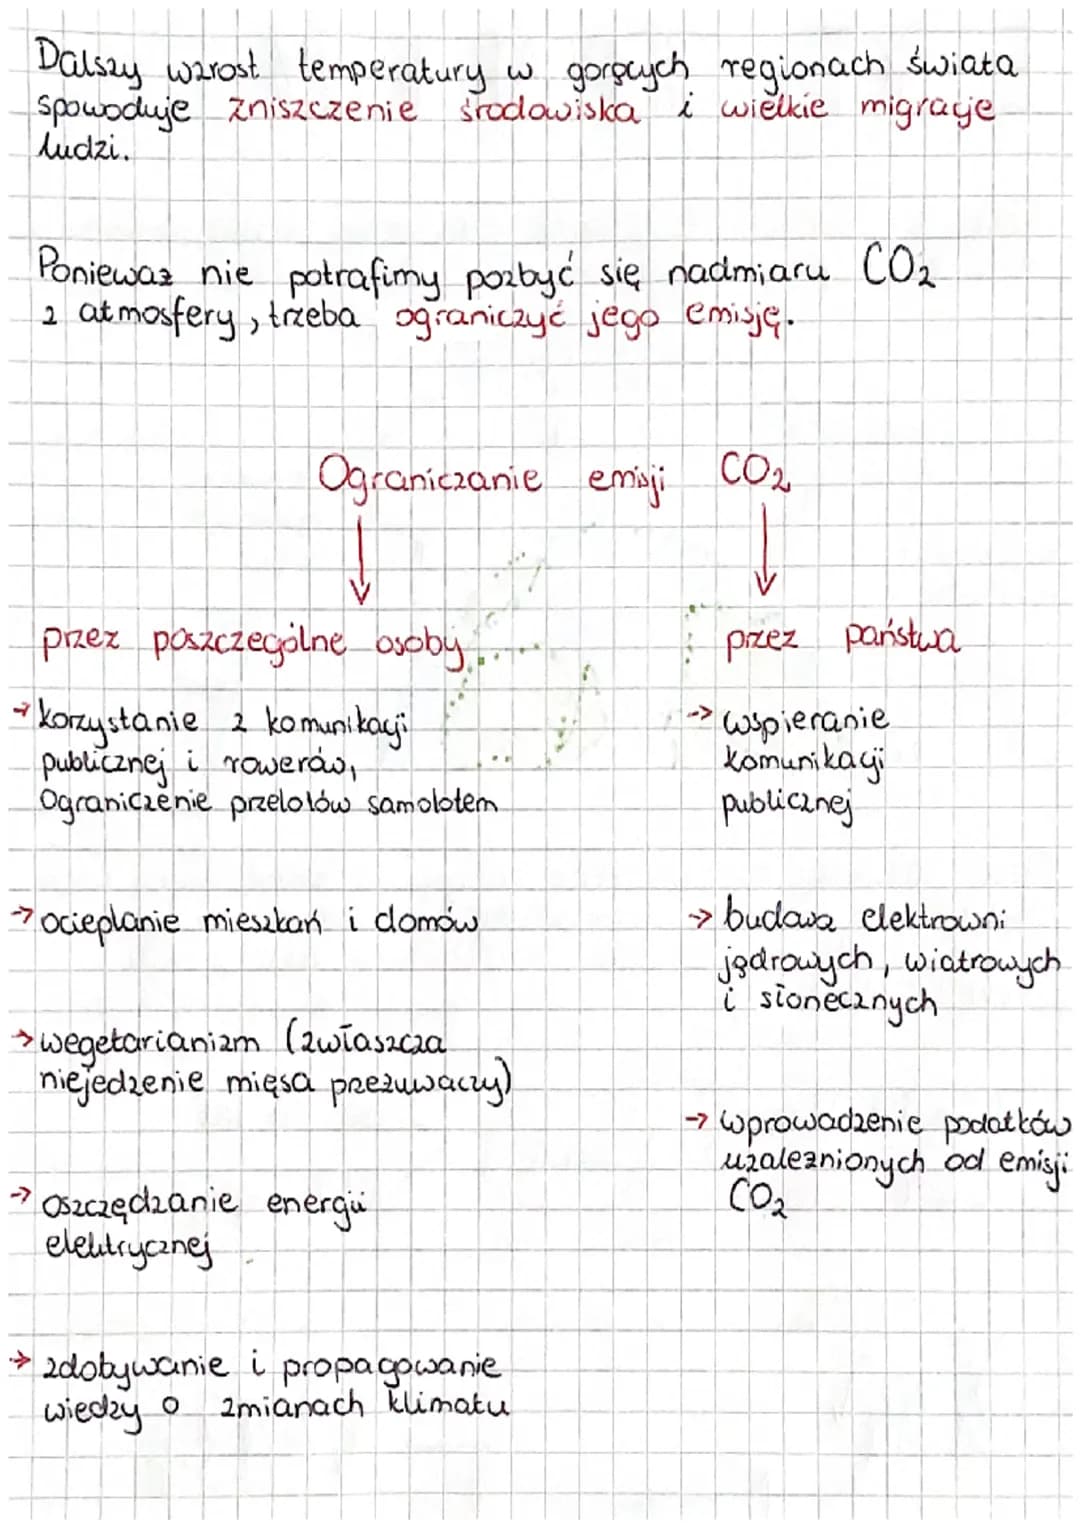 Dalszy wzrost temperatury w gorących regionach świata
spowoduje zniszczenie środowiska i wielkie migracje
ludzi.
Ponieważ nie potrafimy pozbyć się nadmiaru CO₂
z atmosfery, trzeba ograniczyć jego emisję.
Ograniczanie emisji CO₂
przez poszczególne osoby
→ korzystanie z komunikacji
publicznej i rowerów,
Ograniczenie przelotów samolotem
→ ocieplanie mieszkań i domów
→ wegetarianizm (zwłaszcza
niejedzenie mięsa przeżuwaczy)
→ oszczędzanie energii
elektrycznej
→ zdobywanie i propagowanie
wiedzy o zmianach klimatu
przez państwa
→ wspieranie
komunikacji
publicznej
→ budowa elektrowni
jądrowych, wiatrowych
i słonecznych
→ wprowadzenie podatków
uzależnionych od emisji
CO₂